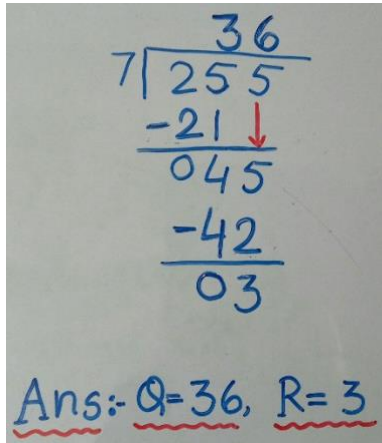 36
7 255
-21
045
-42
03
Ans:- Q=36, R=3